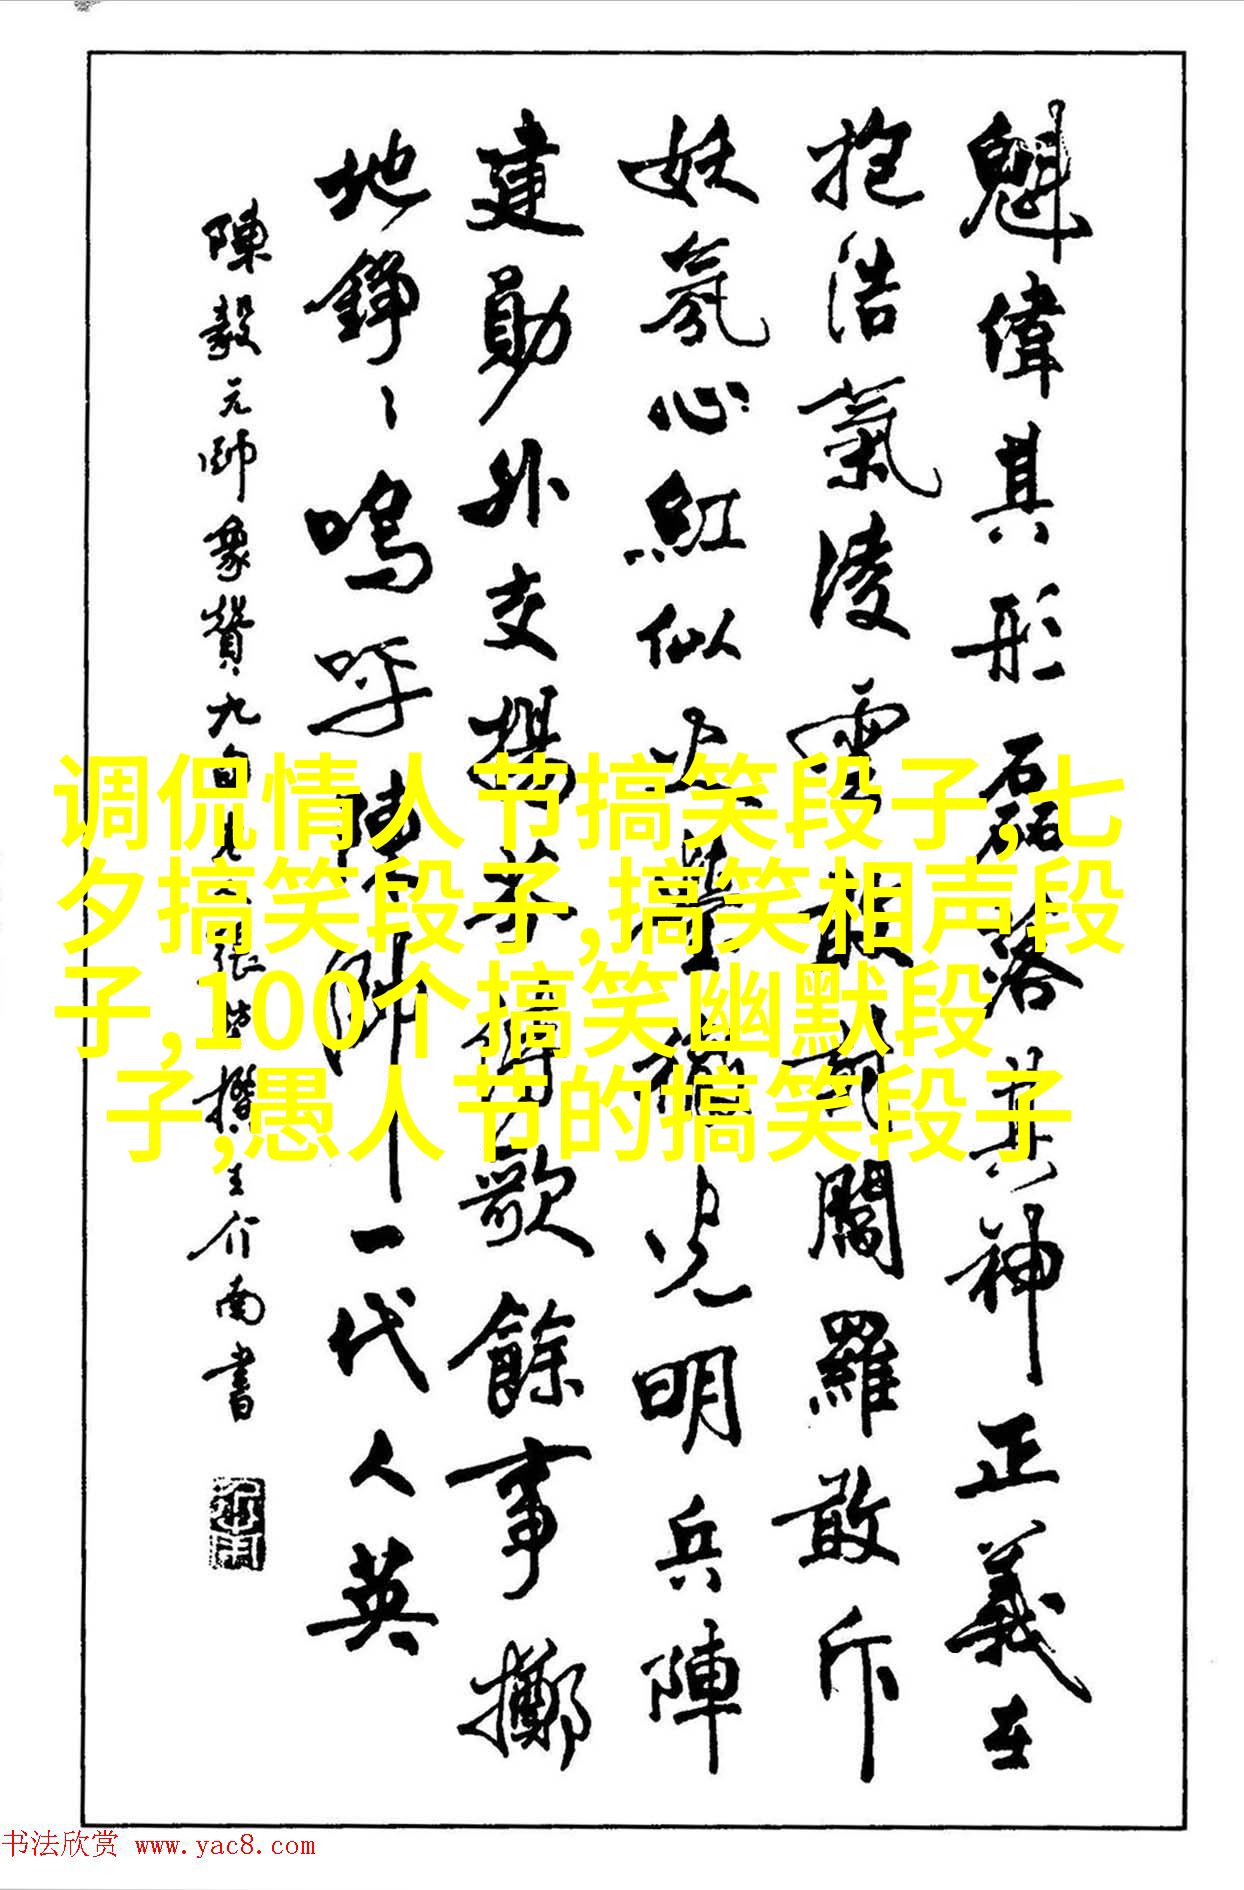 魁偉其形磊落其神正義在
抱浩氣凌雲敢鬭羅敢斥
妖氛心紅似火光明兵陣
建勛外交揚芬歌餘事擲
地錚〻嗚呼陳帥一代人英
陳毅元帥象贊九旬張撰王介南書
调侃情人节搞笑段子,七
夕搞笑段子,搞笑相声段
子,100个搞笑幽默段
子,愚人节的搞笑段子
书法欣赏 www.yac8.com